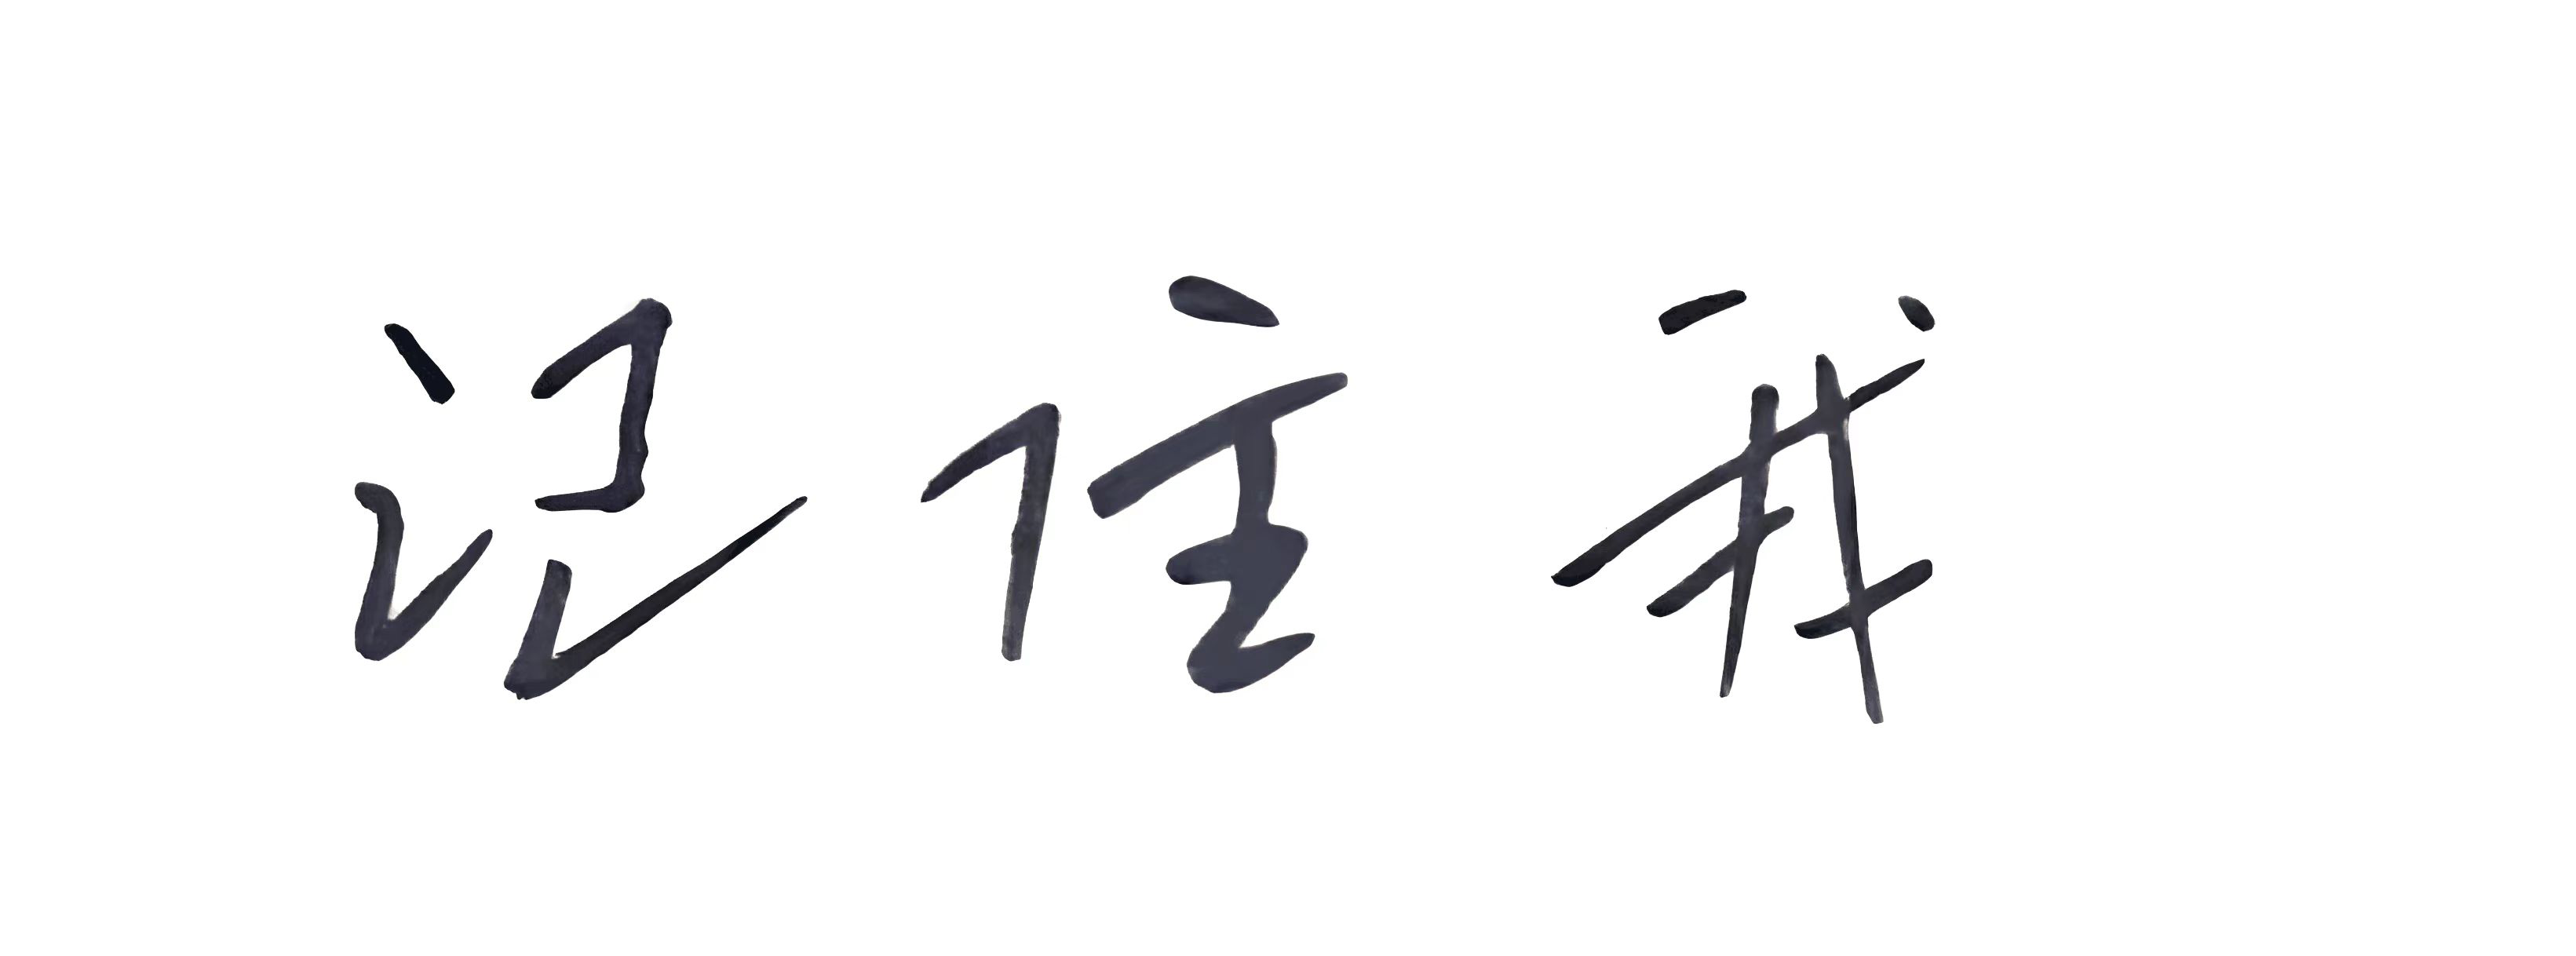 记住我